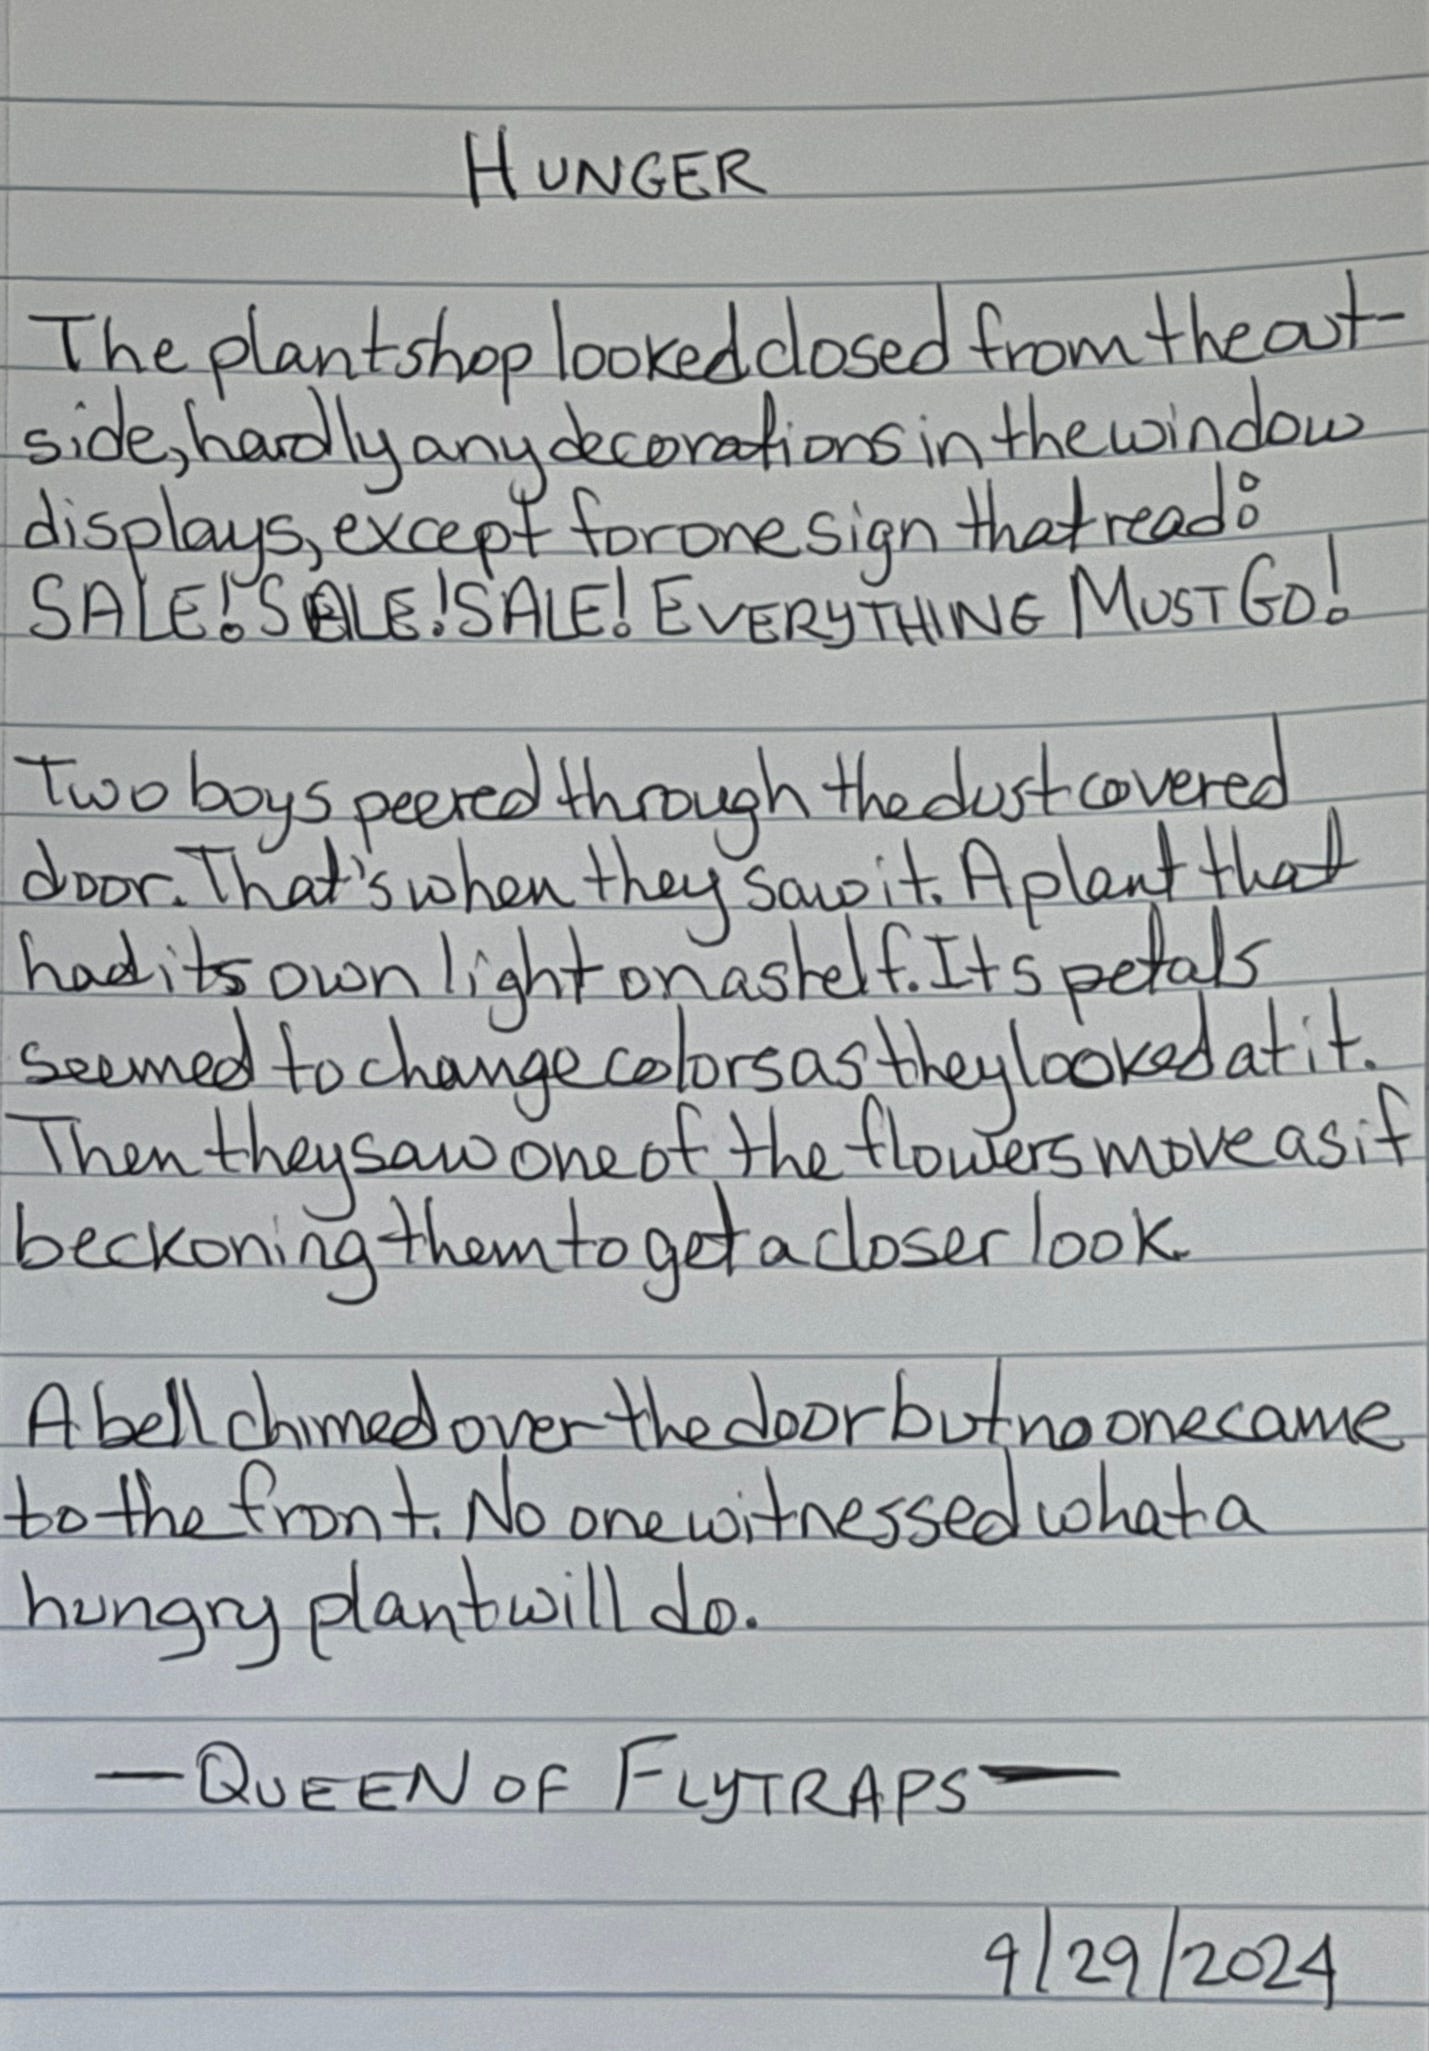 HUNGER
The plant shop looked closed from the out-
side, hardly any decorations in the window
displays, except for one sign that read:
SALE! SALE! SALE! EVERYTHING MUST GO!
Two boys peered through the dust covered
door. That's when they saw it. A plant that
had its own light on a shelf. Its petals
seemed to change colors as they looked at it.
Then they saw one of the flowers move as if
beckoning them to get a closer look.
A bell chimed over the door but no one came
to the front. No one witnessed what a
hungry plant will do.
— QUEEN OF FLYTRAPS —
9/29/2024